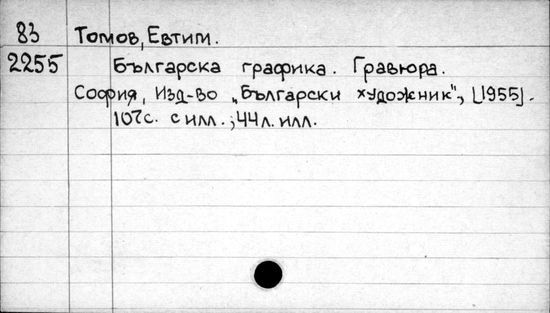 83 Томов, Евтим.
2255 Българска графика. Гравюра.
София, Изд-во „Български художник", [1955].
107с. с илл.; 44л. илл.